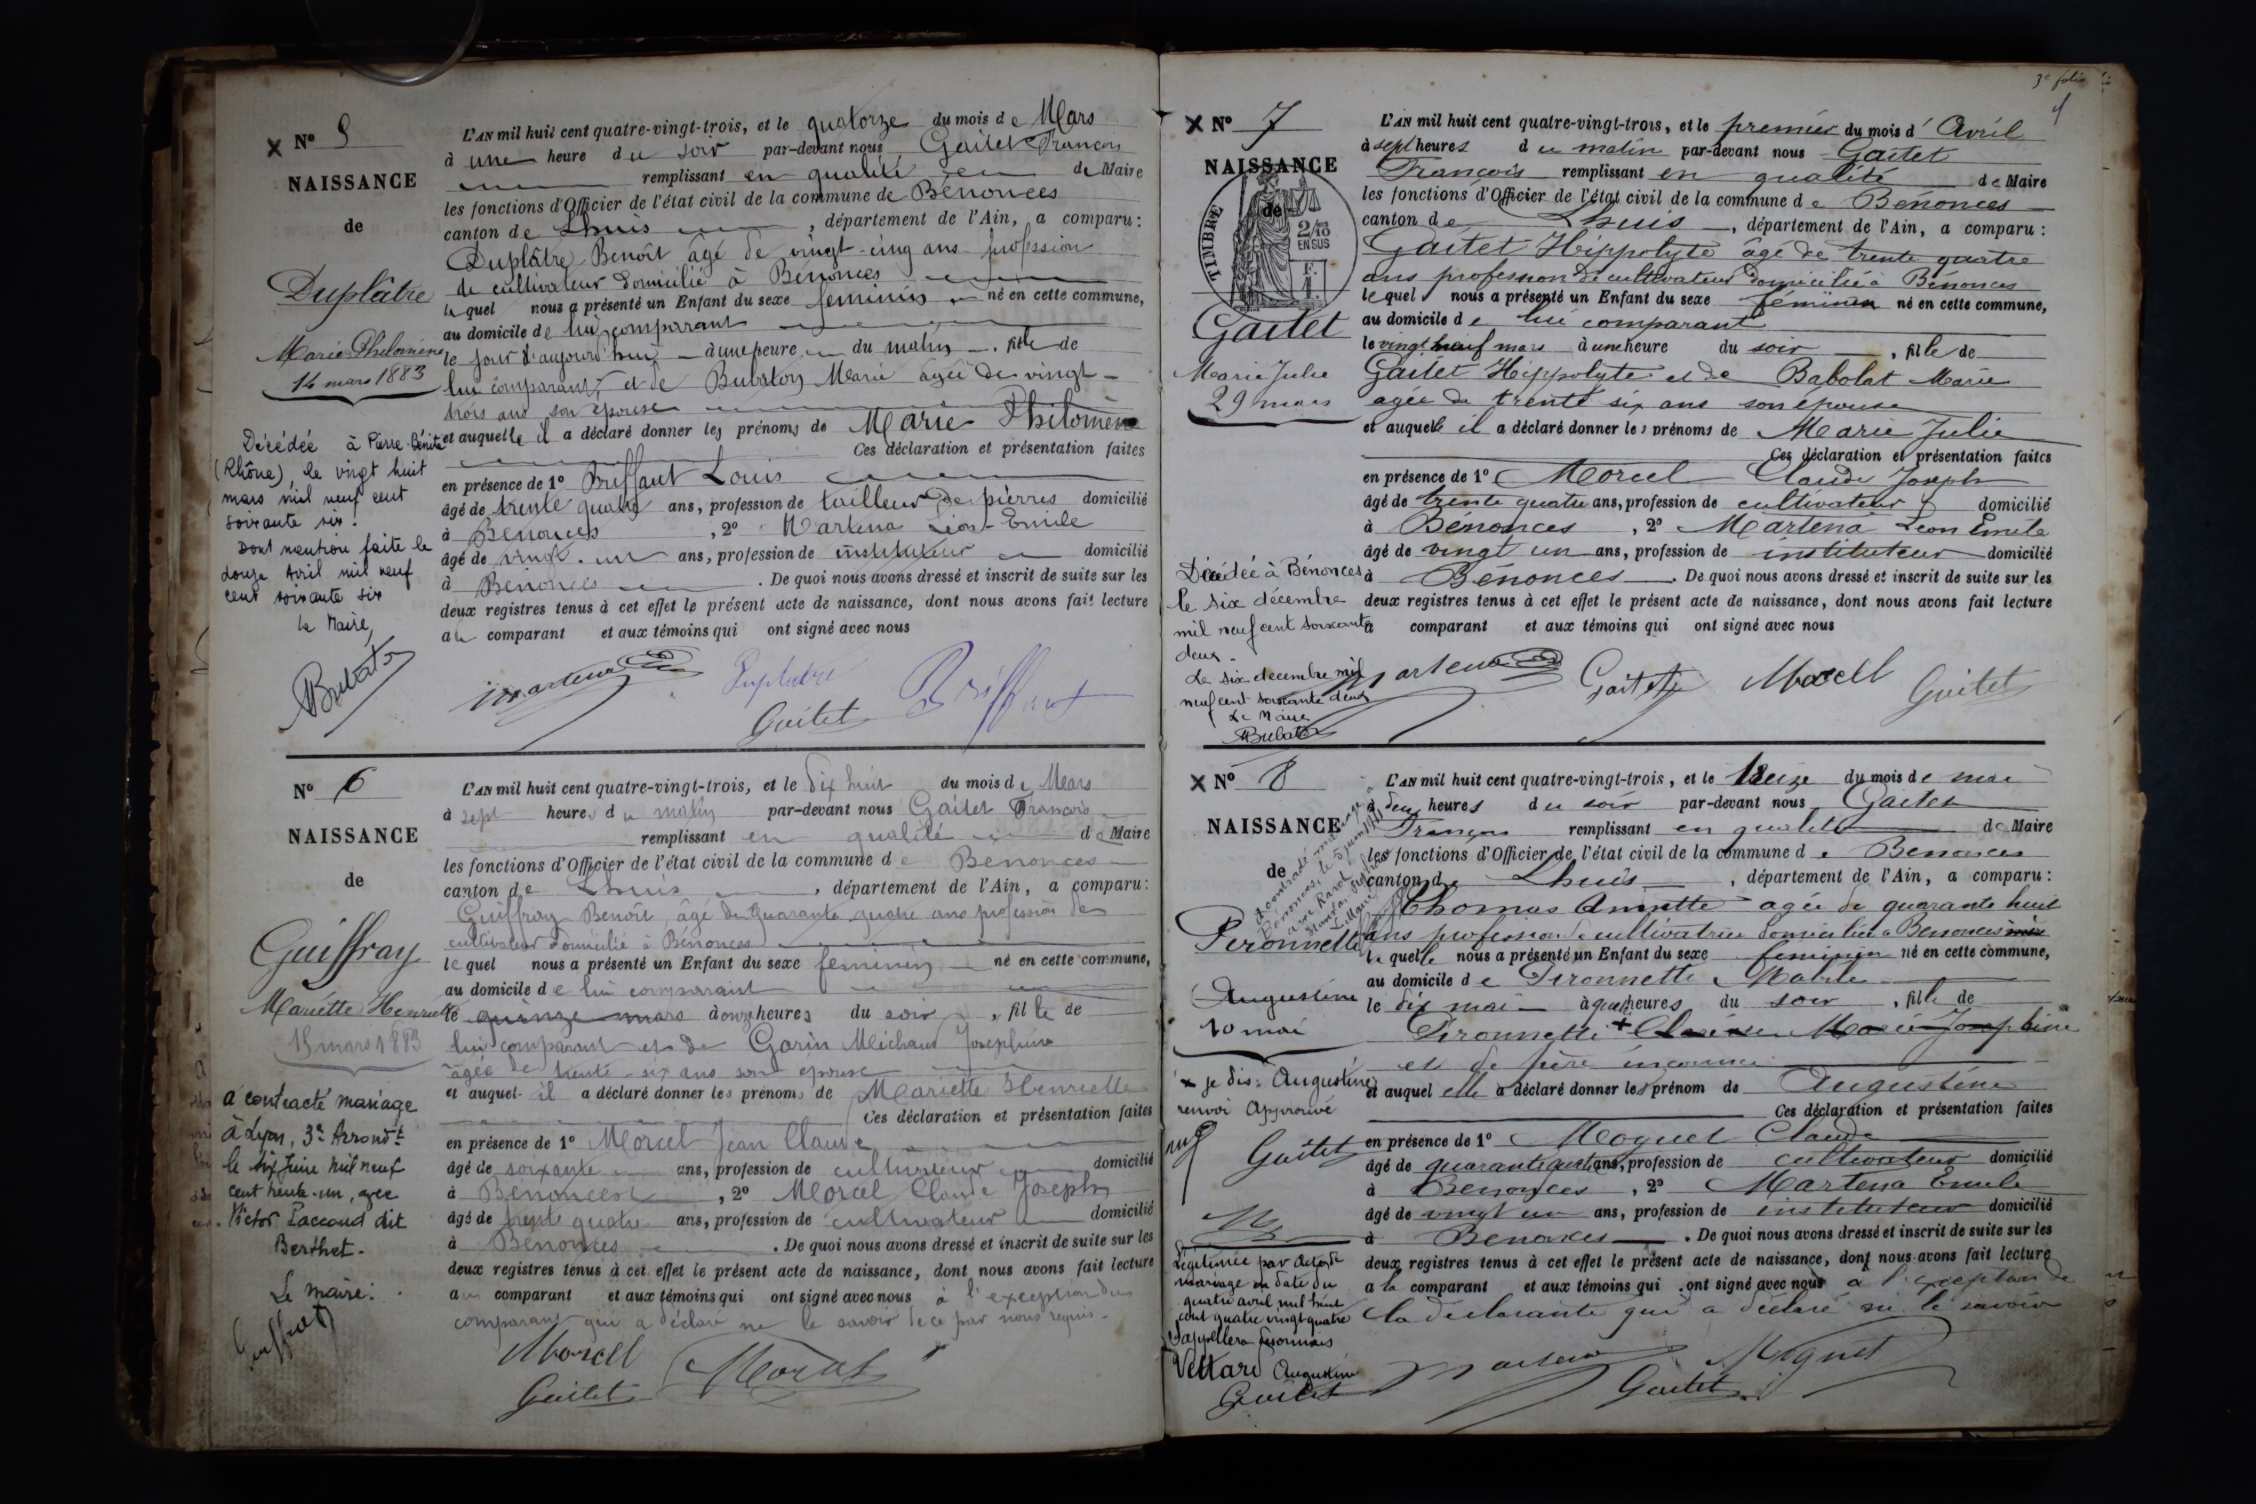 N° 5
NAISSANCE
de
Duplâtre
Marie Philomène
14 mars 1883
Décédée à Pierre-Bénite
(Rhône), le vingt huit
mars mil neuf cent
soixante six.
Dont mention faite le
douze Avril mil neuf
cent soixante six
Le Maire,
Bubaton
L'AN mil huit cent quatre-vingt-trois, et le quatorze du mois de Mars
à une heure du soir par-devant nous Gaitet François
remplissant en qualité de Maire
les fonctions d'Officier de l'état civil de la commune de Bénonces
canton de Lhuis, département de l'Ain, a comparu:
Duplâtre Benoît âgé de vingt-cinq ans profession
de cultivateur domicilié à Bénonces
lequel nous a présenté un Enfant du sexe féminin né en cette commune,
au domicile de lui comparant
le jour d'aujourd'hui à une heure du matin, fille de
lui comparant, et de Bubaton Marie agée de vingt-
trois ans son épouse
et auquelle il a déclaré donner les prénoms de Marie Philomène
Ces déclaration et présentation faites
en présence de 1° Briffaut Louis
âgé de trente quatre ans, profession de tailleur de pierres domicilié
à Bénonces, 2° Martena Léon-Emile
âgé de vingt-un ans, profession de instituteur domicilié
à Bénonces. De quoi nous avons dressé et inscrit de suite sur les
deux registres tenus à cet effet le présent acte de naissance, dont nous avons fait lecture
au comparant et aux témoins qui ont signé avec nous
Martena Duplatre Briffaut
Gaitet
N° 6
NAISSANCE
de
Guiffray
Mariette Henriette
15 mars 1883
a contracté mariage
à Lyon, 3e Arrondt
le six Juin mil neuf
cent trente-un, avec
Victor Paccoud dit
Berthet.
Le maire:
L'AN mil huit cent quatre-vingt-trois, et le dix huit du mois de Mars
à sept heures du matin par-devant nous Gaitet François
remplissant en qualité de Maire
les fonctions d'Officier de l'état civil de la commune de Bénonces
canton de Lhuis, département de l'Ain, a comparu:
Guiffray Benoît, âgé de quarante quatre ans profession de
cultivateur domicilié à Bénonces
lequel nous a présenté un Enfant du sexe féminin né en cette commune,
au domicile de lui comparant
le quinze mars à onze heures du soir, fille de
lui comparant et de Gorin Michaud Joséphine
âgée de trente-six ans son épouse
et auquel il a déclaré donner les prénoms de Mariette Henriette
Ces déclaration et présentation faites
en présence de 1° Morcel Jean Claude
âgé de soixante ans, profession de cultivateur domicilié
à Bénonces, 2° Morcel Claude Joseph
âgé de trente quatre ans, profession de cultivateur domicilié
à Bénonces. De quoi nous avons dressé et inscrit de suite sur les
deux registres tenus à cet effet le présent acte de naissance, dont nous avons fait lecture
au comparant et aux témoins qui ont signé avec nous à l'exception du
comparant qui a déclaré ne le savoir de ce par nous requis.
Morcell Morcel
Gaitet
3e folio
N° 7
NAISSANCE
de
TIMBRE
2/10
EN SUS
Gaitet
Marie Julie
29 mars
Décédée à Bénonces
le six décembre
mil neuf cent soixante
deux.
Le six decembre mil
neuf cent soixante deux
Le Maire
Bubaton
L'AN mil huit cent quatre-vingt-trois, et le premier du mois d'Avril
à sept heures du matin par-devant nous Gaitet
François remplissant en qualité de Maire
les fonctions d'Officier de l'état civil de la commune de Bénonces
canton de Lhuis, département de l'Ain, a comparu:
Gaitet Hippolyte âgé de trente quatre
ans profession de cultivateur domicilié à Bénonces
lequel nous a présenté un Enfant du sexe féminin né en cette commune,
au domicile de lui comparant
le vingt neuf mars à une heure du soir, fille de
Gaitet Hippolyte et de Babolat Marie
agée de trente six ans son épouse
et auquelle il a déclaré donner les prénoms de Marie Julie
Ces déclaration et présentation faites
en présence de 1° Morcel Claude Joseph
âgé de trente quatre ans, profession de cultivateur domicilié
à Bénonces, 2° Martena Léon Emile
âgé de vingt un ans, profession de instituteur domicilié
à Bénonces. De quoi nous avons dressé et inscrit de suite sur les
deux registres tenus à cet effet le présent acte de naissance, dont nous avons fait lecture
à comparant et aux témoins qui ont signé avec nous
Martena Gaitet Morcell Gaitet
N° 8
NAISSANCE
de
Peronnette
Augustine
10 mai
A contracté mariage à
Bénonces, le 5 juin
Le Maire
x je dis: Augustine
renvoi Approuvé
Gaitet
Légitimée par acte de
mariage en date du
quatre avril mil huit
cent quatre vingt quatre
S'appellera désormais
Vettard Augustine
Gaitet
L'AN mil huit cent quatre-vingt-trois, et le treize du mois de mai
à deux heures du soir par-devant nous Gaitet
François remplissant en qualité de Maire
les fonctions d'Officier de l'état civil de la commune de Bénonces
canton de Lhuis, département de l'Ain, a comparu:
Thomas Annette agée de quarante huit
ans profession de cultivatrice domiciliée à Bénonces
laquelle nous a présenté un Enfant du sexe féminin né en cette commune,
au domicile de Peronnette
le dix mai à quatre heures du soir, fille de
Peronnette + Marie Joséphine
et de père inconnu
et auquel elle a déclaré donner les prénom de Augustine
Ces déclaration et présentation faites
en présence de 1° Moguet Claude
âgé de quarante quatre ans, profession de cultivateur domicilié
à Bénonces, 2° Martena Emile
âgé de vingt un ans, profession de instituteur domicilié
à Bénonces. De quoi nous avons dressé et inscrit de suite sur les
deux registres tenus à cet effet le présent acte de naissance, dont nous avons fait lecture
a la comparant et aux témoins qui ont signé avec nous a l'exception de
la déclarante qui a déclaré ne le savoir
Martena Moguet
Gaitet